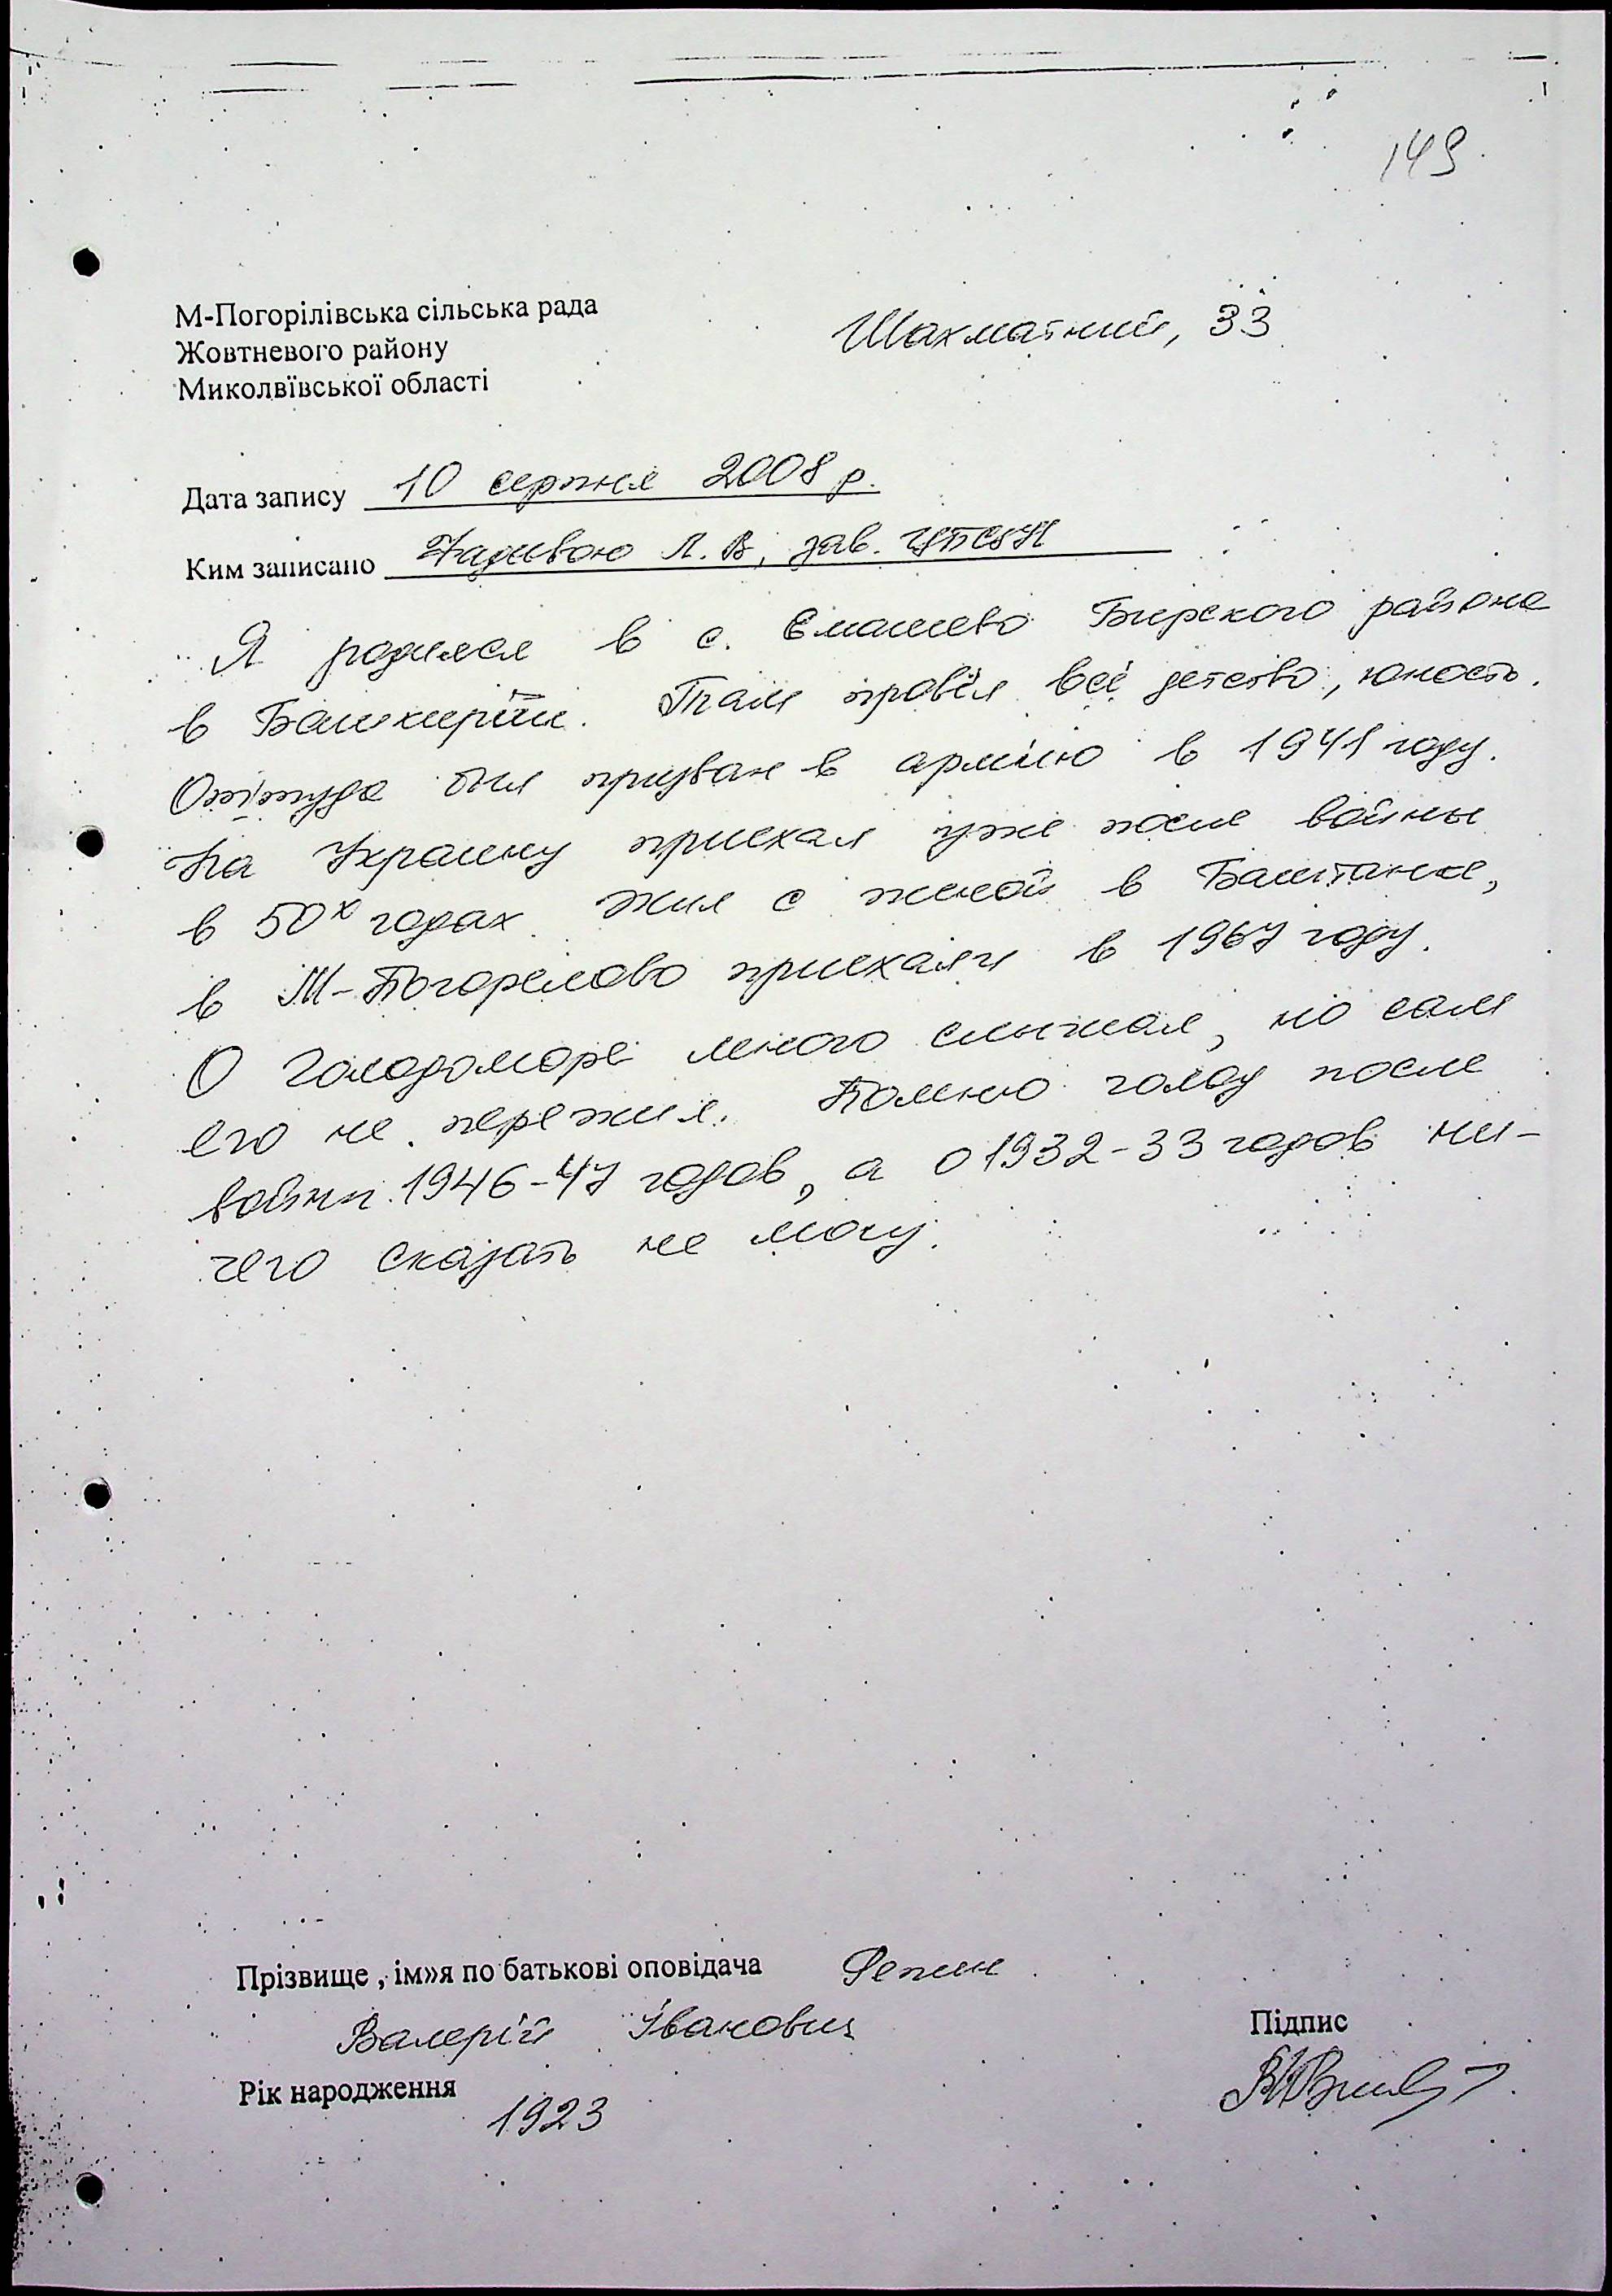 149
М-Погорілівська сільська рада
Жовтневого району
Миколвївської області
Шахматний, 33
Дата запису 10 серпня 2008 р.
Ким записано Л. В, зав.
Я родился в с. Емашево Бирского района
в Башкирии. Там провёл всё детство, юность.
Оттуда был призван в армию в 1941 году.
На Украину приехал уже после войны
в 50х годах. Жил с женой в Баштанке,
в М-Погорелово приехали в 1967 году.
О Голодоморе много слышал, но сам
его не пережил. Помню голод после
войны 1946-47 годов, а о 1932-33 годов ни-
чего сказать не могу.
Прізвище , ім»я по батькові оповідача Репин
Валерій Іванович
Підпис
Рік народження
1923